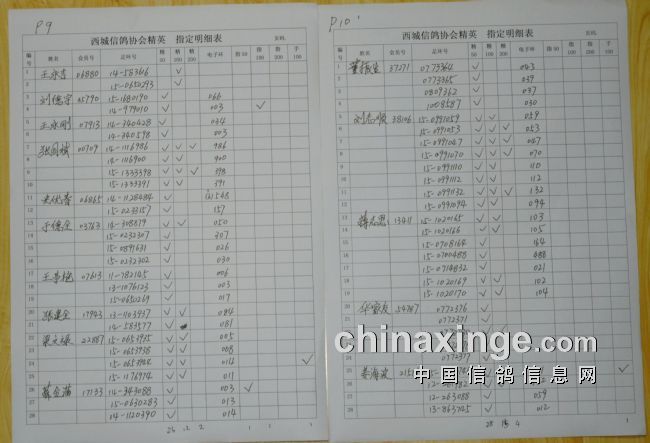 P9
西城信鸽协会精英 指定明细表
页码:
编号 姓名 会员号 足环号 精50 精100 精200 电子环 指50 指100 指200 千100
1 06880 14-583616 ✓
2 15-0650293 ✓
3 刘德宇 05790 15-1680190 ✓ 066
4 14-979010 ✓ 003 ✓
5 王永刚 07913 14-340428 ✓ 034
6 14-340598 ✓ 003
7 张国斌 00709 14-1116986 ✓ ✓ ✓ 986
8 14-1116900 ✓ ✓ 900
9 15-1333398 ✓ ✓ ✓ 398
10 15-1333391 ✓ ✓ 391
11 06865 14-1128484 ✓ 1548
12 15-0233157 ✓ 157
13 于德全 03763 14-308879 ✓ ✓ 050
14 15-0232307 ✓ 307
15 15-0891631 ✓ 026
16 15-0232302 ✓ 030
17 07613 11-782145 ✓ 006
18 13-1076123 ✓ 003
19 15-0650269 ✓ 017
20 张建全 17943 13-1103937 ✓ ✓ 084
21 14-583577 ✓ 081
22 22887 15-0653935 ✓ ✓ 005
23 15-0653938 ✓ ✓ 008
24 15-0653924 ✓ ✓ 014 ✓
25 15-1176914 ✓ ✓ 011
26 17133 14-343088 ✓ 003 ✓
27 15-0630283 ✓ 013
28 14-1120390 ✓ 014
2 1 1
P10
西城信鸽协会精英 指定明细表
页码:
编号 姓名 会员号 足环号 精50 精100 精200 电子环 指50 指100 指200 千100
1 37271 0773364 ✓ 043
2 0773365 ✓ 039
3 0809362 ✓ 037
4 1008587 ✓ 030
5 刘志顺 38106 15-0991059 ✓ ✓ 059
6 15-0991053 ✓ ✓ ✓ 053
7 15-0991047 ✓ ✓ ✓ 047
8 15-0991070 ✓ ✓ ✓ 070
9 15-0991110 ✓ ✓ 110
10 15-0991112 ✓ ✓ 112
11 15-0991132 ✓ ✓ ✓ 132
12 15-0991094 ✓ ✓ 094
13 蒋志忠 13411 15-1020165 ✓ ✓ 103
14 15-1020166 ✓ ✓ 105
15 15-0708164 ✓ 164
16 15-0700488 ✓ 488
17 15-0714832 ✓ 021
18 15-1020169 ✓ ✓ 102
19 15-1020170 ✓ ✓ 104
20 54787 0772376 ✓
21 0772371 ✓
0772377
25 姜海波 215 ✓
27 12-263088 ✓ 059
28 13-863745 ✓ 012
28 15 4 1
chinaxinge.com
中国信鸽信息网